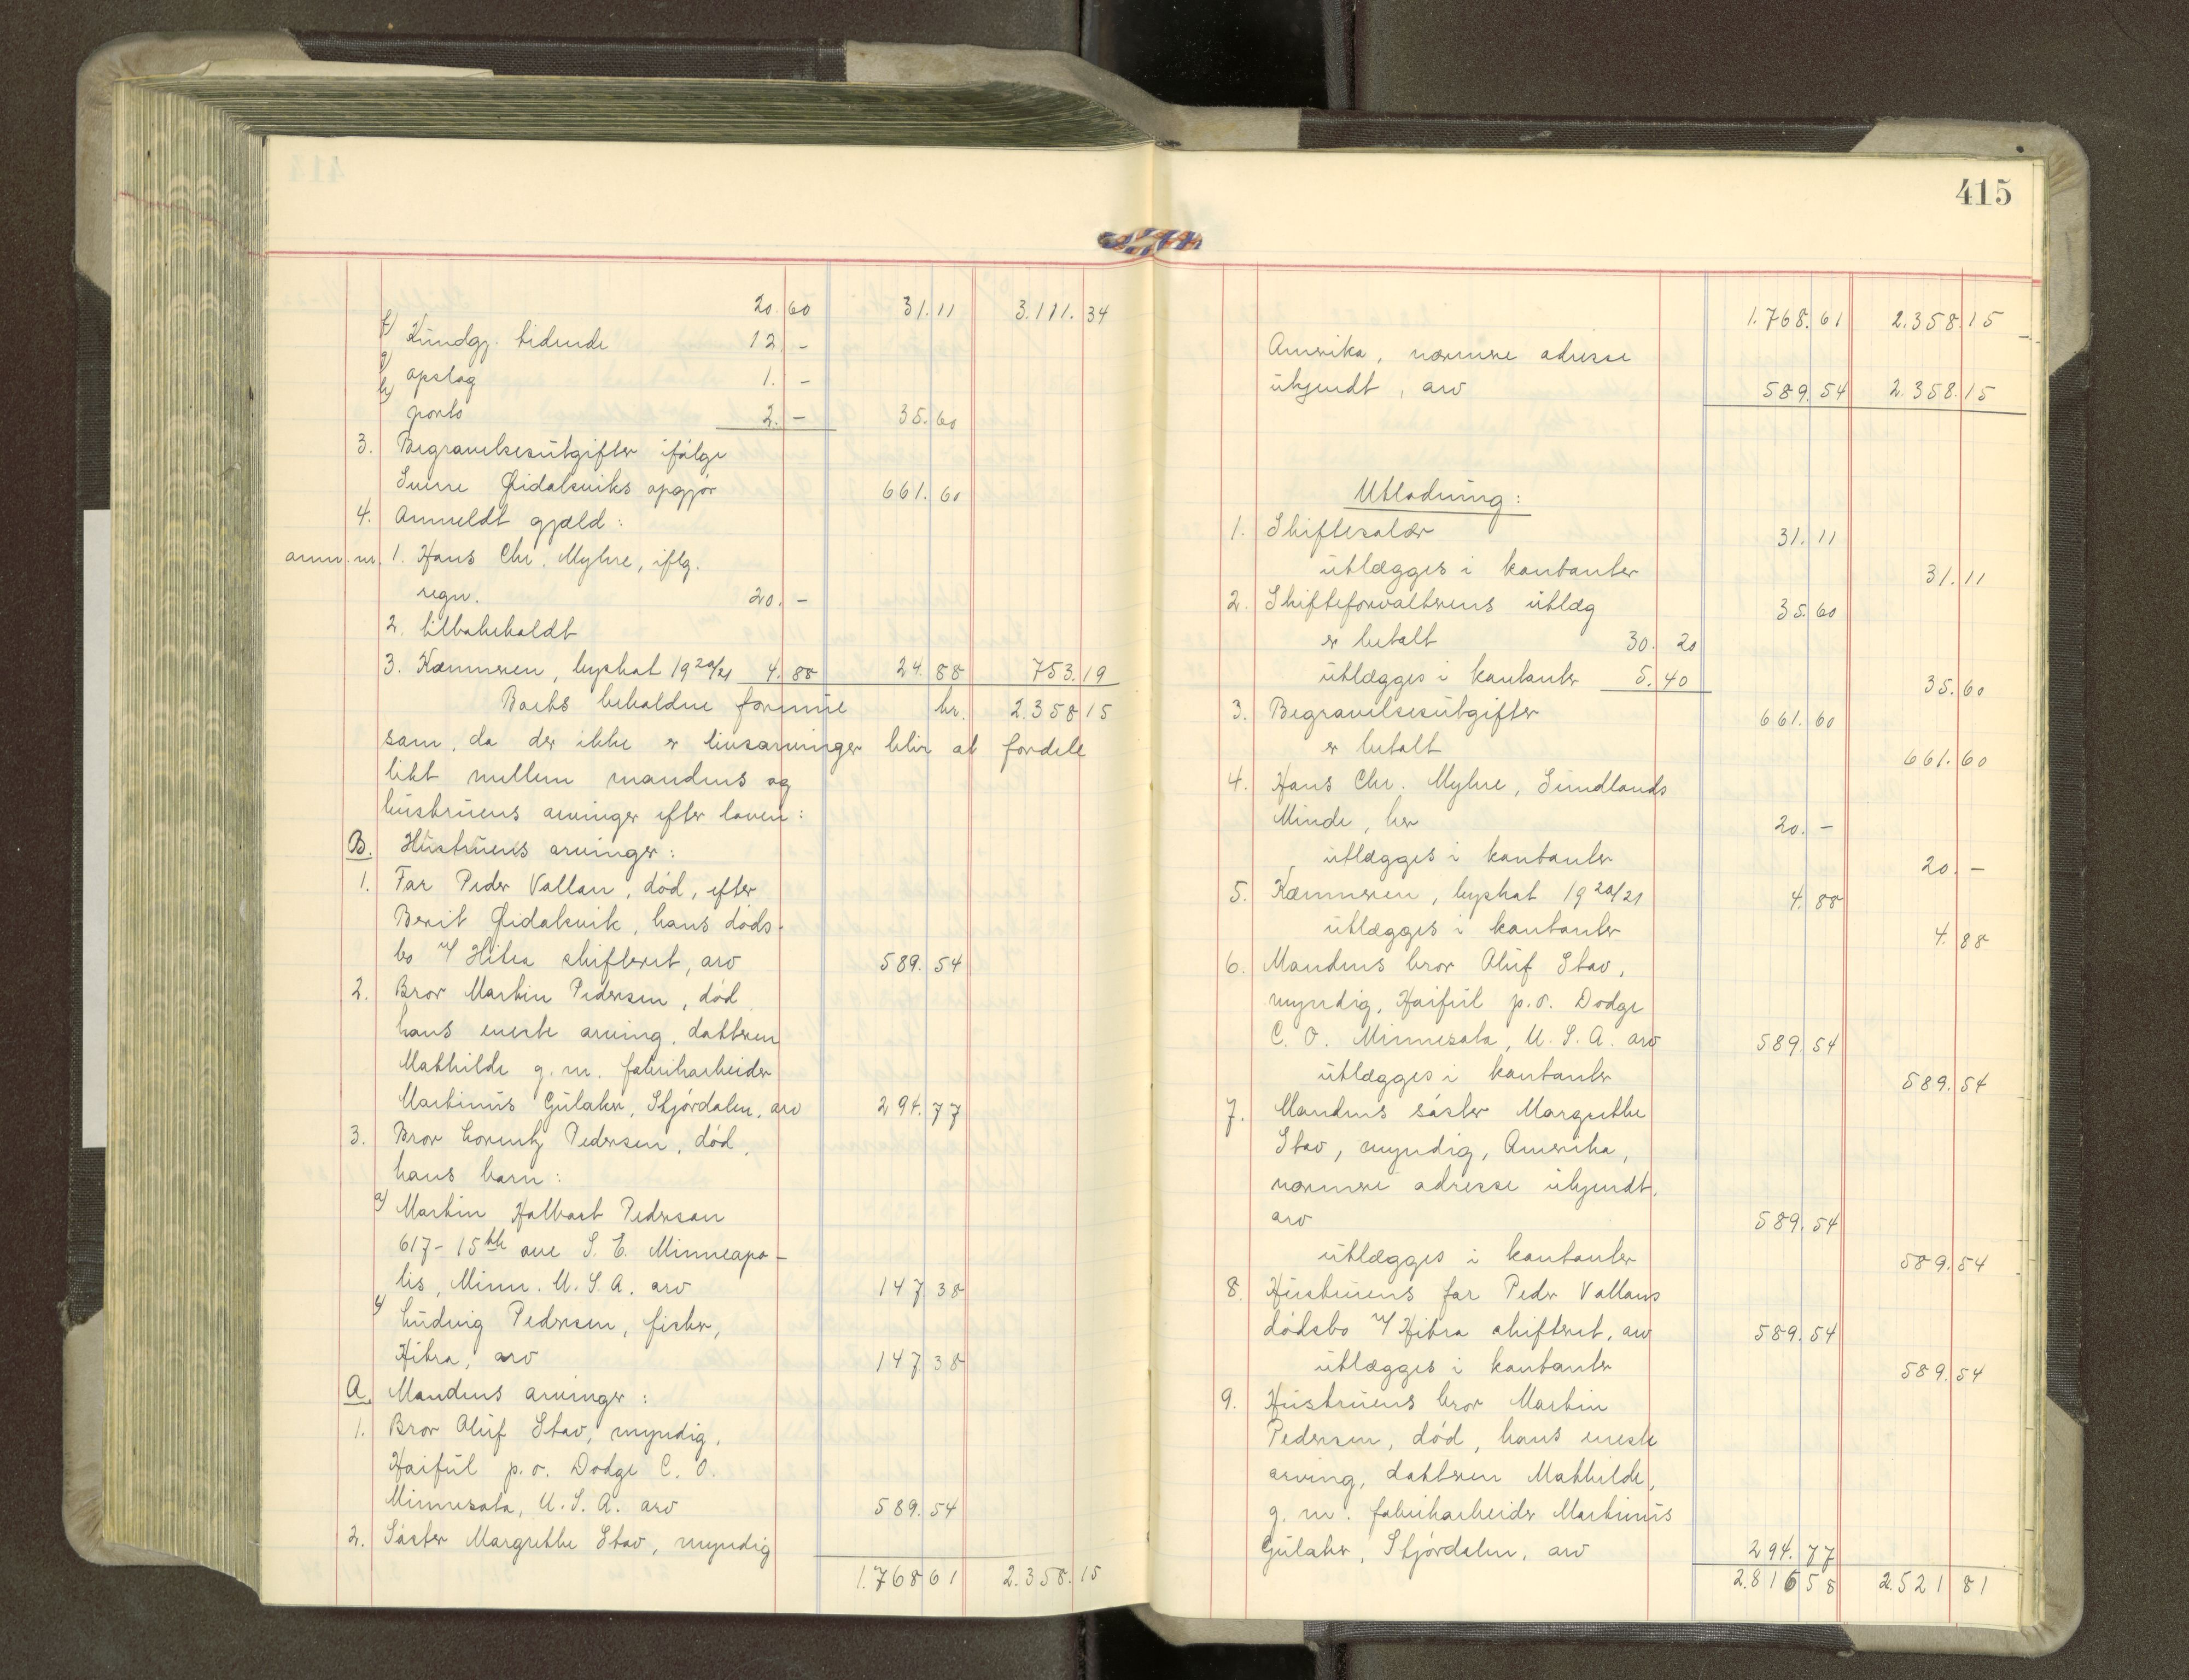 20.60 31.11 3.111.34
f) Kundgj. tidende 12.-
g) opslag 1.-
h) porto 2.- 35.60
3. Begravelsesutgifter ifølge
Sverre Qvidalsviks opgjør 661.60
4. Anmeldt gjæld:
anm. nr. 1. Hans Chr. Myhre, iflg.
regn. 20.-
2. tilbakekaldt
3. Kæmneren, byskat 1920/21 4.88 24.88 753.19
Boets beholdne formue kr. 2.358 15
som, da der ikke er livsarvinger blir at fordele
likt mellem mandens og
hustruens arvinger efter loven:
B. Hustruens arvinger:
1. Far Peder Vallan, død, efter
Berit Qvidalsvik, hans døds-
bo v/ Hitra skifteret, arv 589.54
2. Bror Martin Pedersen, død
hans eneste arving, datteren
Mathilde g.m. fabrikarbeider
Martinus Gulaker, Stjørdalen, arv 294.77
3. Bror Lorentz Pedersen, død,
hans barn:
a) Martin Halbart Pederson
617-15th ave S. E. Minneapo-
lis, Minn. U.S.A. arv 147 38
b) Ludvig Pedersen, fisker,
Hitra, arv 147 38
A. Mandens arvinger:
1. Bror Oluf Stav, myndig,
Haiful p.o. Dodge C.O.
Minnesota, U.S.A. arv 589.54
2. Søster Margrethe Stav, myndig
1.768 61 2.358.15
415
1.768.61 2.358.15
Amerika, nærmere adresse
ukjendt, arv 589.54 2.358.15
Utlodning:
1. Skiftesalær 31.11
utlægges i kontanter 31.11
2. Skifteforvalterens utlæg 35.60
er betalt 30.20
utlægges i kontanter 5.40 35.60
3. Begravelsesutgifter 661.60
er betalt 661.60
4. Hans Chr. Myhre, Sundlands
Minde, her 20.-
utlægges i kontanter 20.-
5. Kæmneren, byskat 1920/21 4.88
utlægges i kontanter 4.88
6. Mandens bror Oluf Stav,
myndig, Haiful p.o. Dodge
C.O. Minnesota, U.S.A. arv 589.54
utlægges i kontanter 589.54
7. Mandens søster Margrethe
Stav, myndig, Amerika,
nærmere adresse ukjendt,
arv 589.54
utlægges i kontanter 589.54
8. Hustruens far Peder Vallans
dødsbo v/ Hitra skifteret, arv 589.54
utlægges i kontanter 589.54
9. Hustruens bror Martin
Pedersen, død, hans eneste
arving, datteren Mathilde,
g.m. fabrikarbeider Martinus
Gulaker, Stjørdalen, arv 294.77
2.816 58 2.521 81